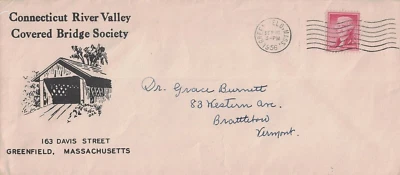 Connecticut River Valley
Covered Bridge Society
163 DAVIS STREET
GREENFIELD, MASSACHUSETTS
MASS.
1956
Dr. Grace Burnett
83 Western Ave.
Brattlebow
Vermont.